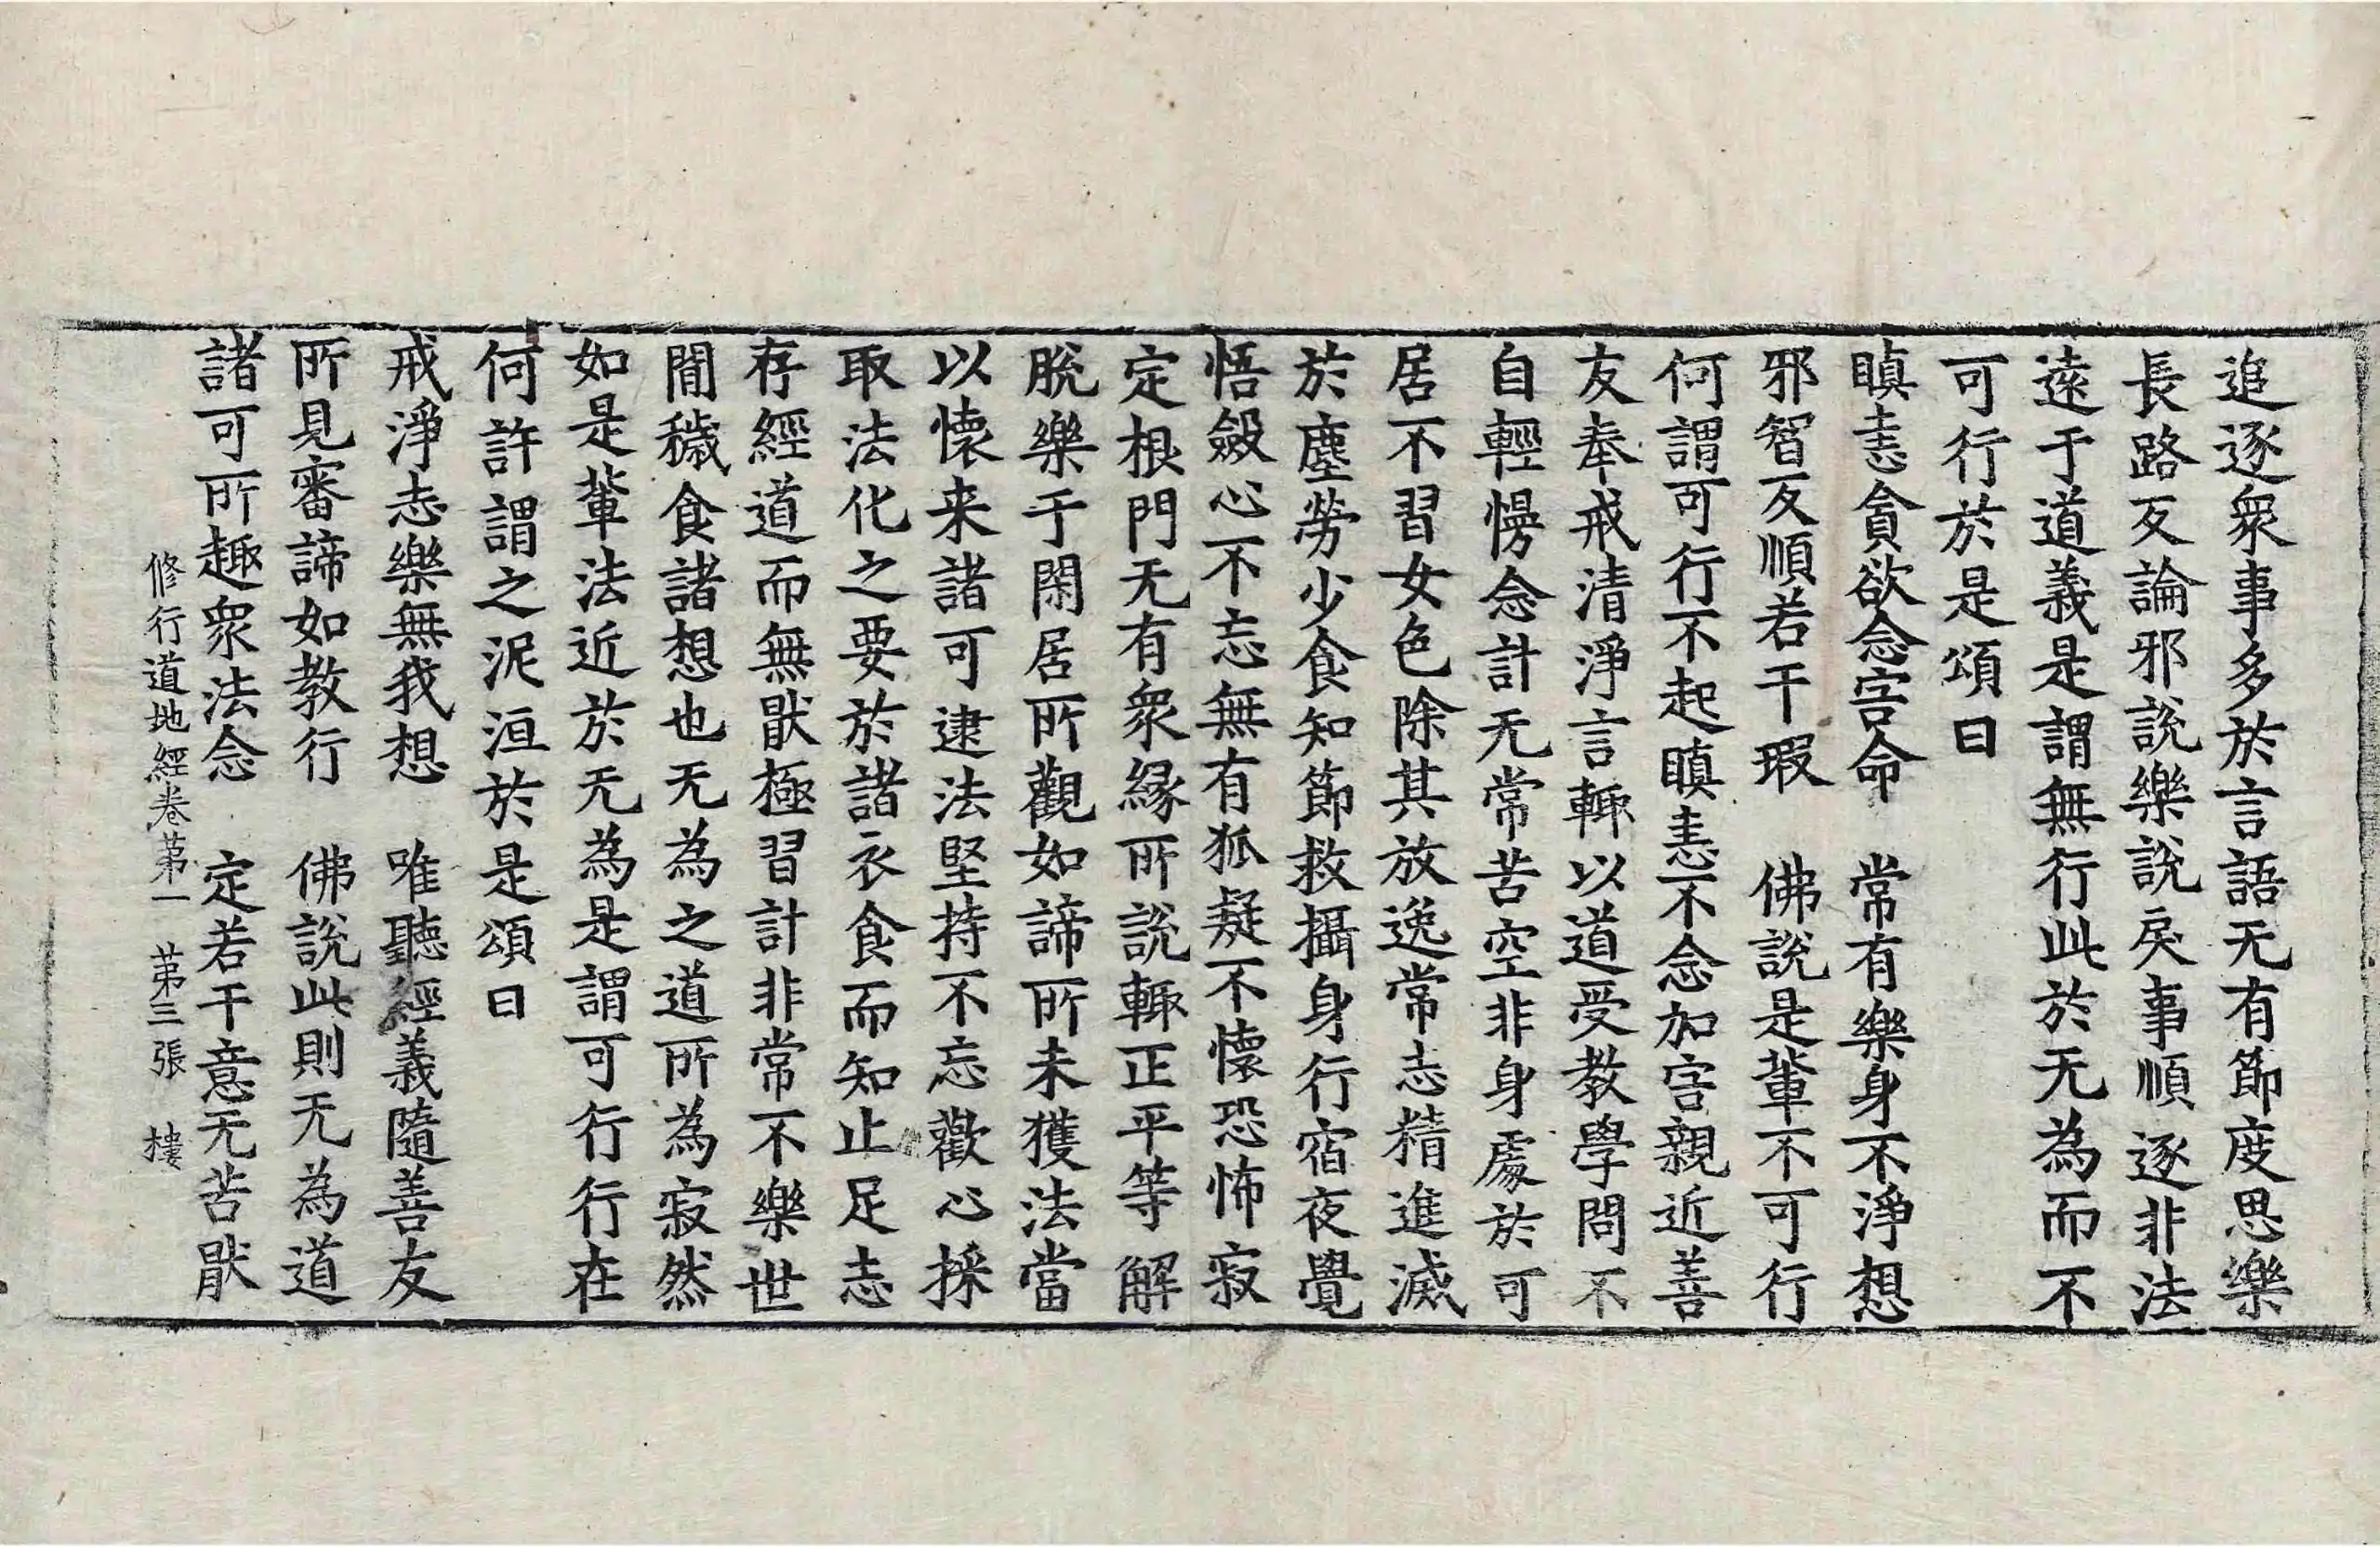 追逐衆事多於言語无有節度思樂
長路反論邪說樂說戾事順逐非法
遠于道義是謂無行此於无為而不
可行於是頌曰
瞋恚貪欲念害命　常有樂身不淨想
邪智反順若干瑕　佛說是輩不可行
何謂可行不起瞋恚不念加害親近善
友奉戒清淨言輙以道受教學問不
自輕慢念計无常苦空非身處於可
居不習女色除其放逸常志精進滅
於塵勞少食知節救攝身行宿夜覺
悟斂心不忘無有狐疑不懷恐怖寂
定根門无有衆縁所說輙正平等解
脫樂于閑居所觀如諦所未獲法當
以懷来諸可逮法堅持不忘歡心採
取法化之要於諸衣食而知止足志
存經道而無猒極習計非常不樂世
閒穢食諸想也无為之道所為寂然
如是輩法近於无為是謂可行行在
何許謂之泥洹於是頌曰
戒淨志樂無我想　唯聽經義隨善友
所見審諦如教行　佛說此則无為道
諸可所趣衆法念　定若干意无苦猒
修行道地經卷第一　第三張　樓